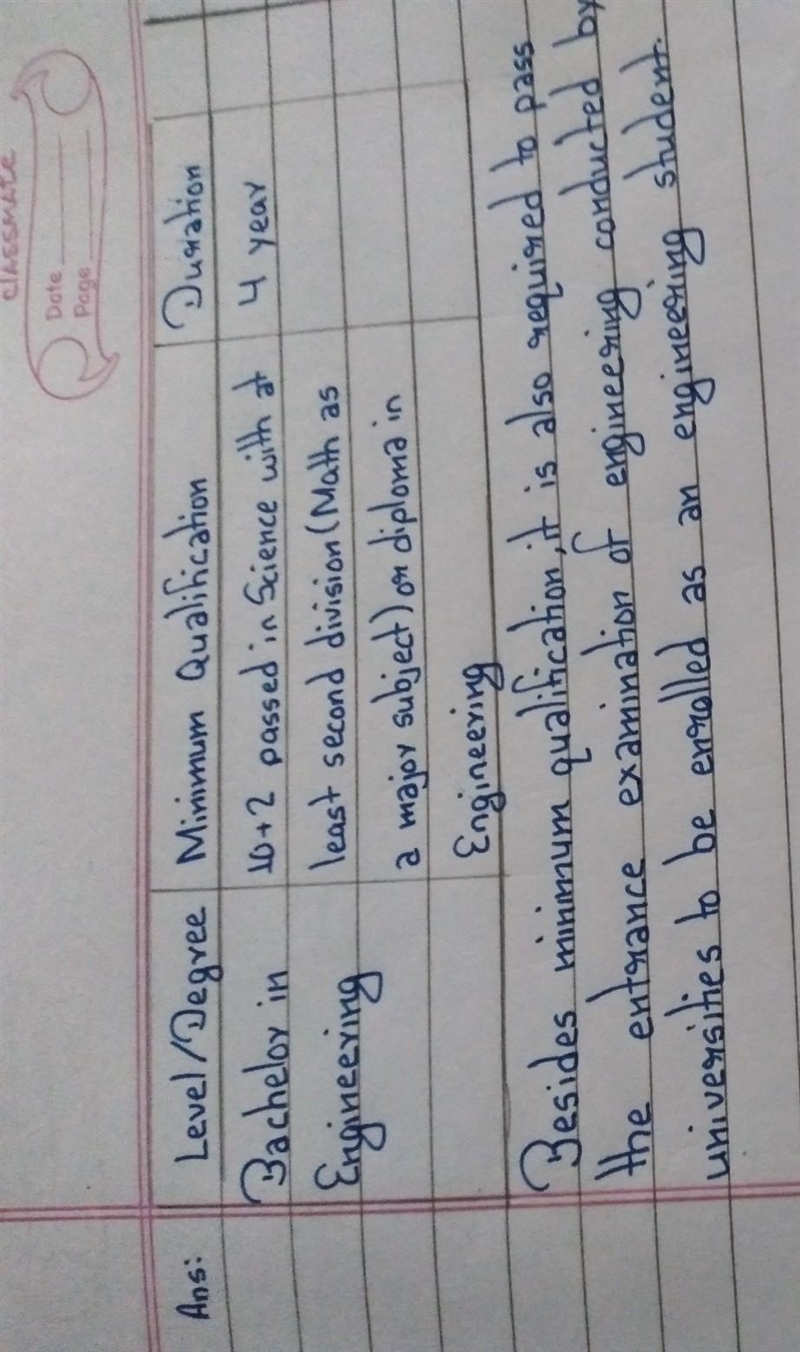 classmate
Date
Page
Ans: Level/Degree Minimum Qualification Duration
Bachelor in 10+2 passed in Science with at 4 year
Engineering least second division (Math as
a major subject) or diploma in
Engineering
Besides minimum qualification, it is also required to pass
the entrance examination of engineering conducted by
universities to be enrolled as an engineering student.